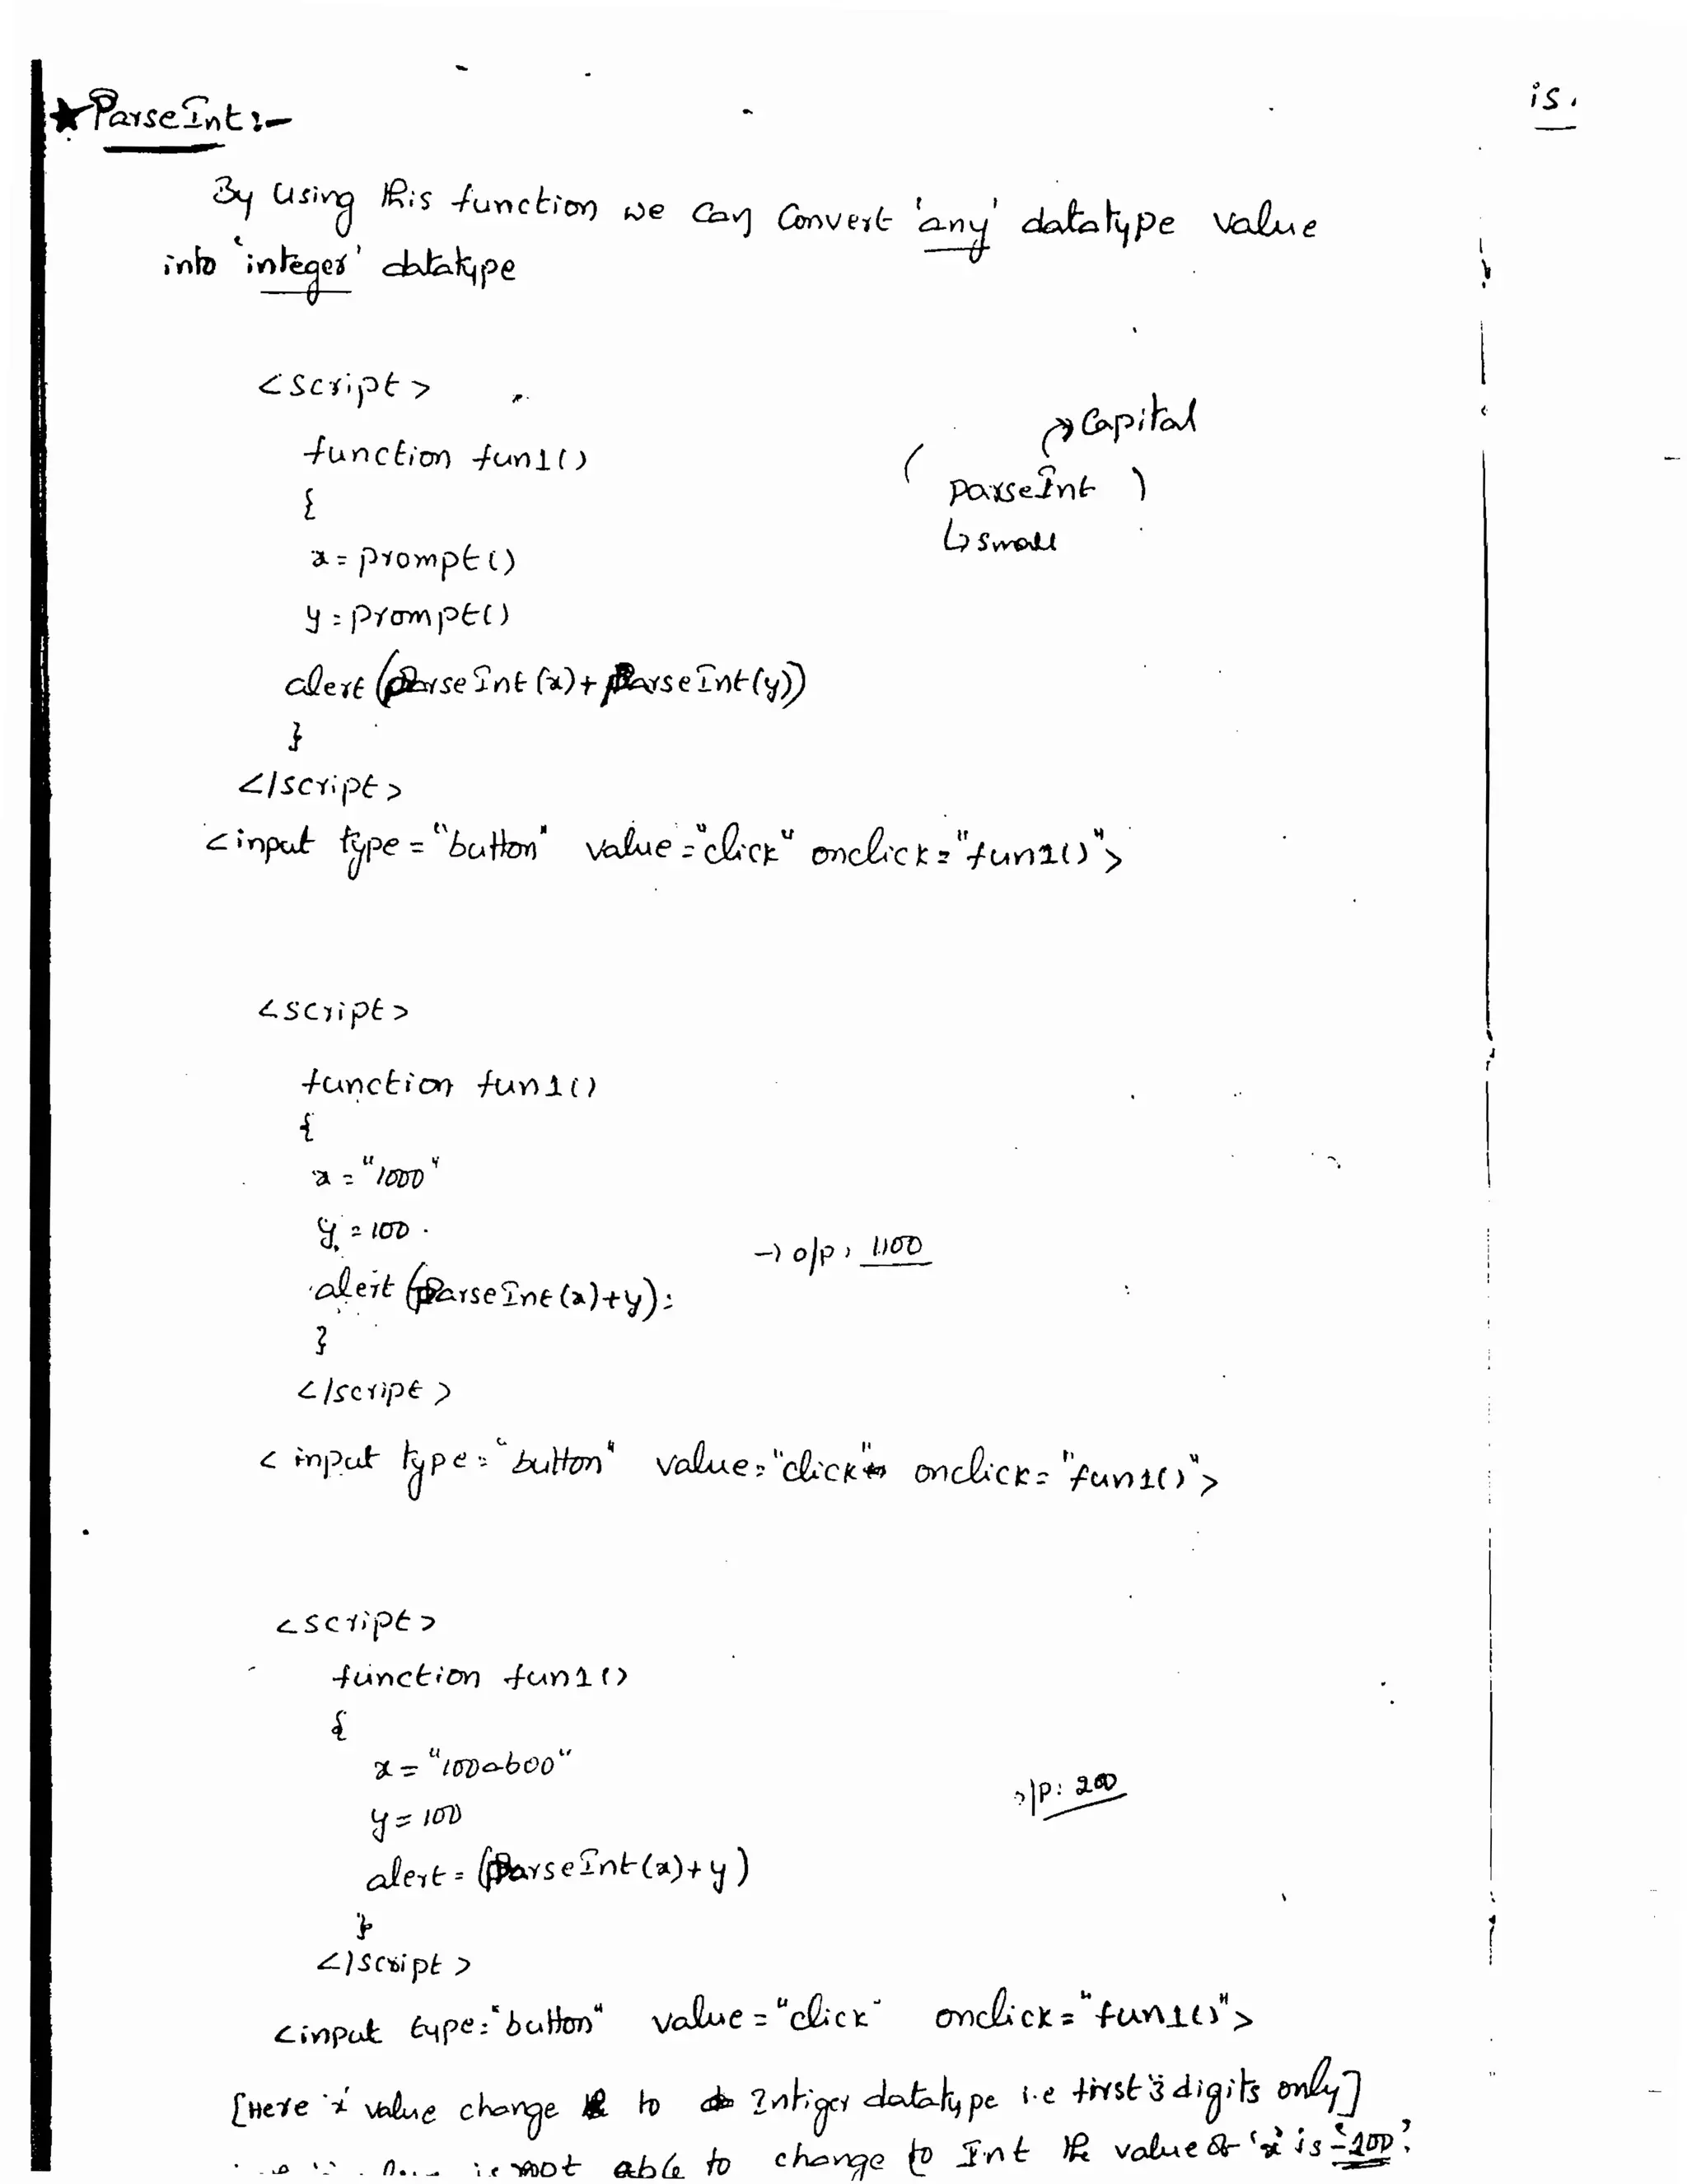 is.
ParseInt:-
By Using this function we can Convert 'any' datatype value
into 'integer' datatype
<script>
function fun1()
{
x = prompt()
y = prompt()
alert(parseInt(x)+parseInt(y))
}
</script>
<input type="button" value="click" onclick="fun1()">
Capital
( parseInt )
small
<script>
function fun1()
{
x = "1000"
y = 100
alert(parseInt(x)+y);
}
</script>
→ o/p: 1100
<input type="button" value="click" onclick="fun1()">
<script>
function fun1()
{
x = "100ab00"
y = 100
alert = (parseInt(x)+y)
}
</script>
o/p: 200
<input type="button" value="click" onclick="fun1()">
[Here 'x' value change to Intiger datatype i.e first 3 digits only]
is not able to change to Int the value of 'x' is '100'